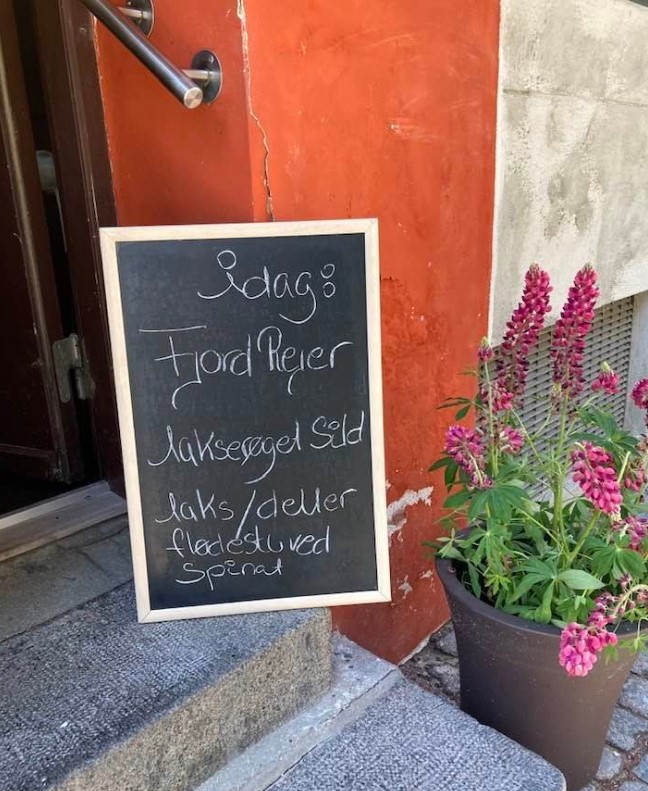 Idag:
Fjord Rejer
lakserøget Sild
laks/deller
flødestuved
Spinat